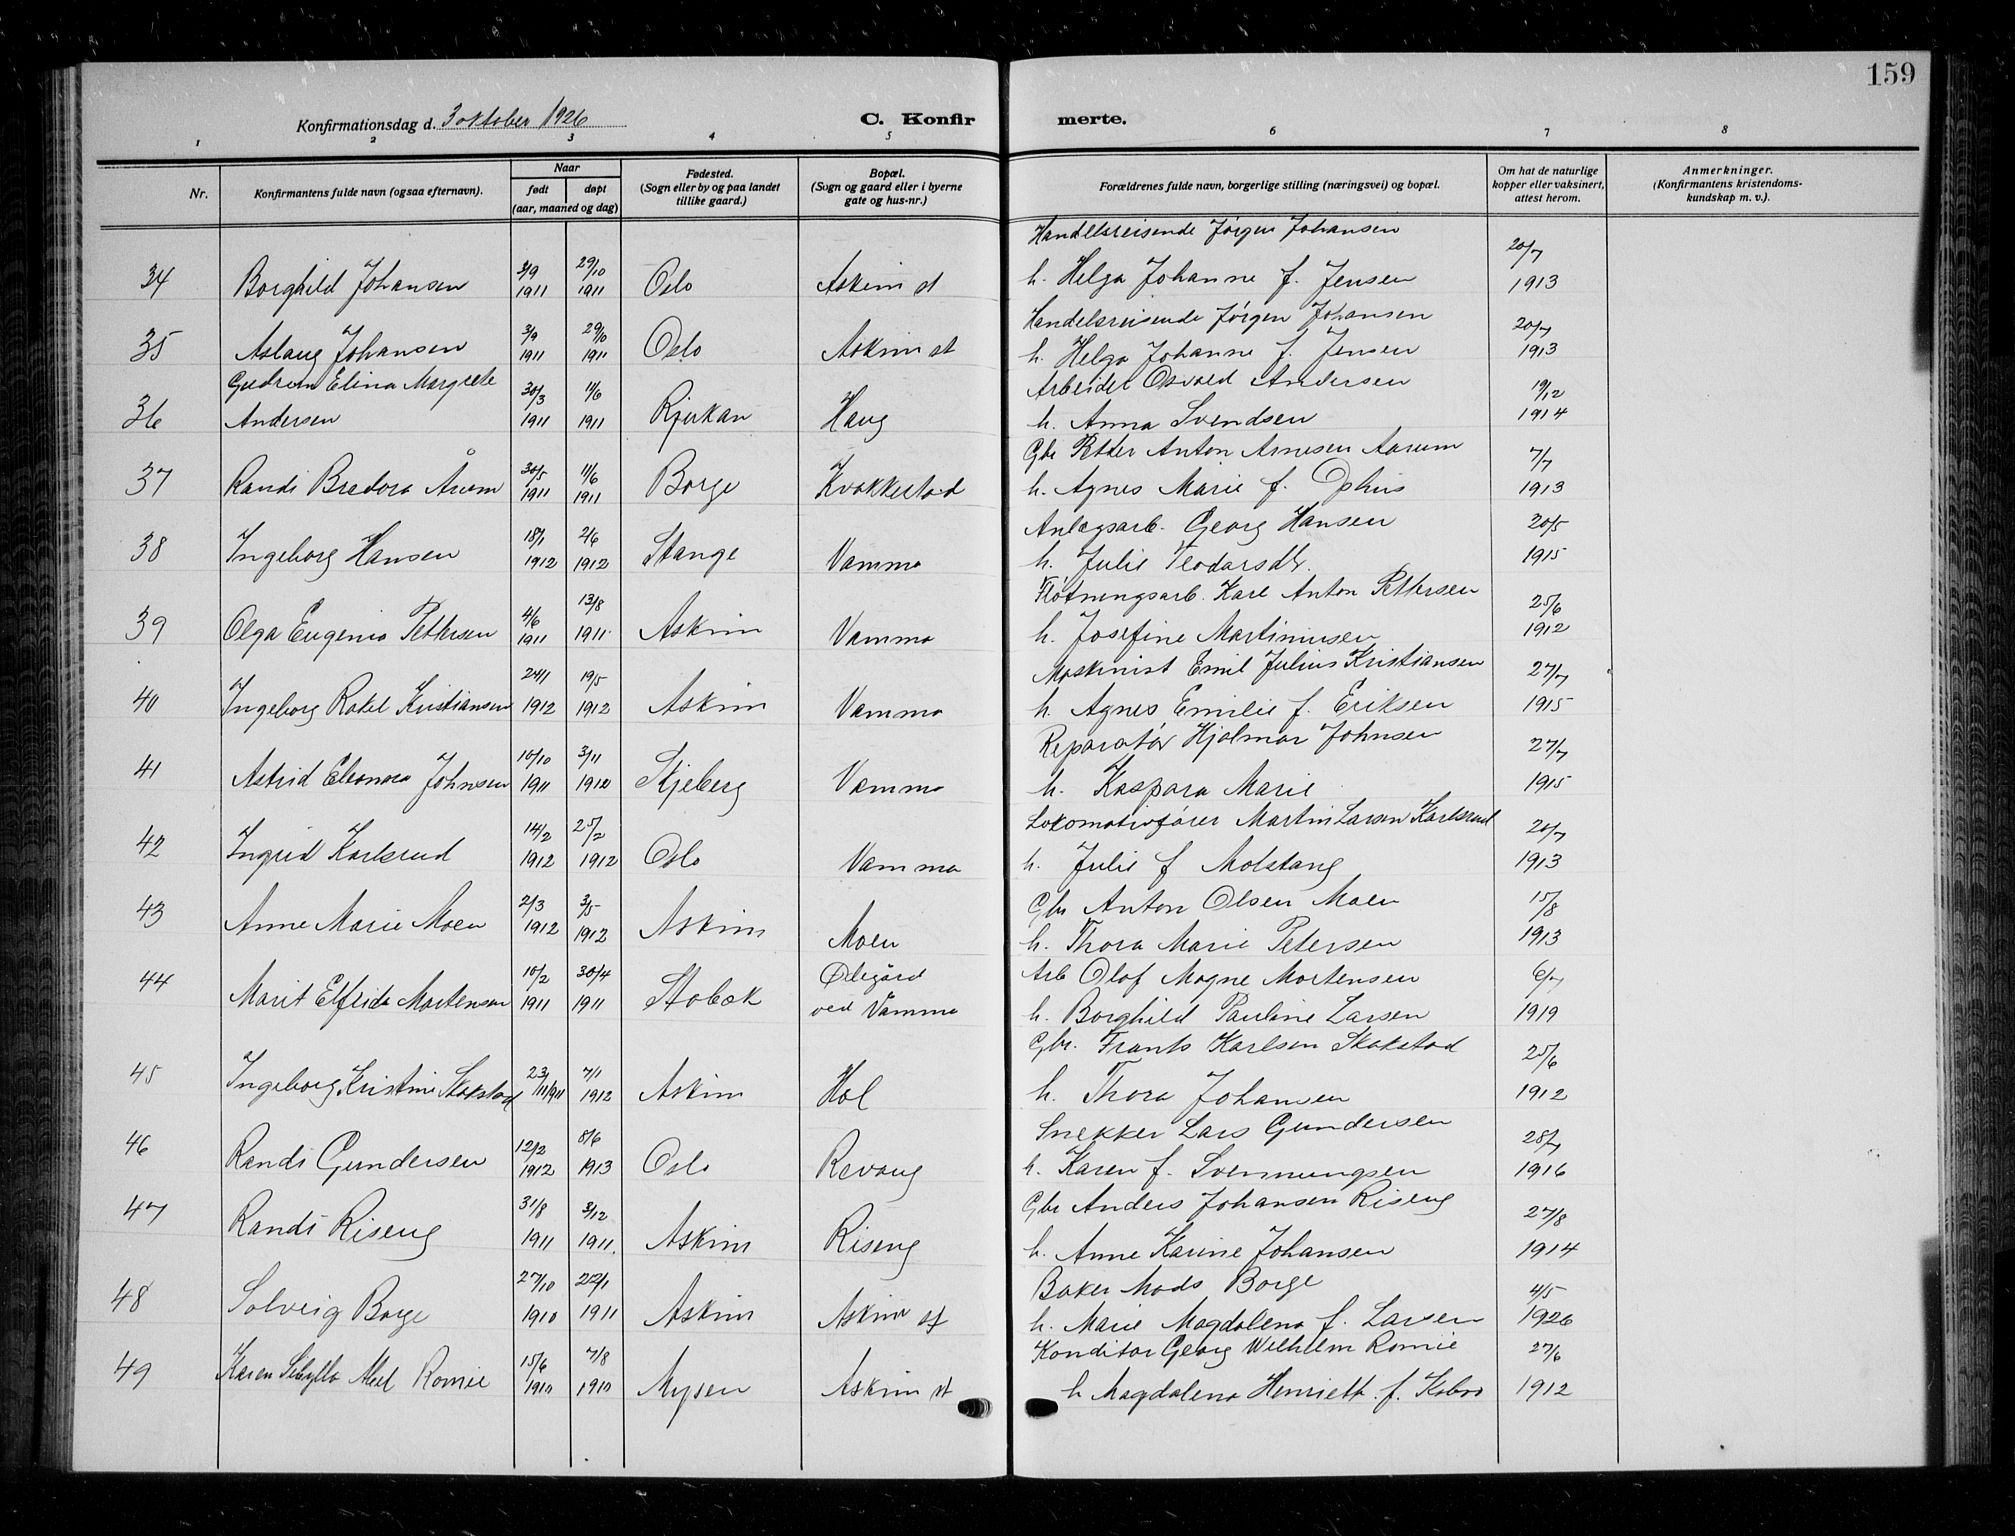 159
Konfirmationsdag d. 3 oktober 1926
C. Konfirmerte.
1 2 3 4 5 6 7 8
Nr.
Konfirmantens fulde navn (ogsaa efternavn).
Naar
født
døpt
(aar, maaned og dag)
Fødested.
(Sogn eller by og paa landet
tillike gaard.)
Bopæl.
(Sogn og gaard eller i byerne
gate og hus-nr.)
Forældrenes fulde navn, borgerlige stilling (næringsvei) og bopæl.
Om hat de naturlige
kopper eller vaksinert,
attest herom.
Anmerkninger.
(Konfirmantens kristendoms-
kundskap m. v.).
Handelsreisende Jørgen Johansen
3/9 29/10 20/7
34 Borghild Johansen 1911 1911 Oslo Askim st h. Helga Johanne f. Jensen 1913
Handelsreisende Jørgen Johansen
3/9 29/10 20/7
35 Aslaug Johansen 1911 1911 Oslo Askim st h. Helga Johanne f. Jensen 1913
Gudrun Elina Margrete 30/3 11/6 Arbeider Osvald Andersen 19/12
36 Andersen 1911 1911 Rjukan Haug h. Anna Svendsen 1914
30/5 11/6 Gbr Petter Anton Arnesen Aarum 7/7
37 Randi Bredora Årum 1911 1911 Borge Kvakkestad h. Agnes Marie f. Ophus 1913
18/1 2/6 Anlægsarb. Georg Hansen 20/5
38 Ingeborg Hansen 1912 1912 Stange Vamma h. Julie Teodorsdtr. 1915
4/6 13/8 Fløtningsarb. Karl Anton Pettersen 25/6
39 Olga Eugenia Pettersen 1911 1911 Askim Vamma h. Josefine Martinusen 1912
24/1 19/5 Maskinist Emil Julius Kristiansen 27/7
40 Ingeborg Rakel Kristiansen 1912 1912 Askim Vamma h. Agnes Emilie f. Eriksen 1915
10/10 3/11 Reparatør Hjalmar Johnsen 27/7
41 Astrid Eleonora Johnsen 1911 1912 Skjeberg Vamma h. Kaspara Marie 1915
14/2 25/2 Lokomotivfører Martin Larsen Karlsrud 20/7
42 Ingrid Karlsrud 1912 1912 Oslo Vamma h. Julie f Molstang 1913
2/3 3/5 Gbr Anton Olsen Moen 15/8
43 Anne Marie Moen 1912 1912 Askim Moen h. Thora Marie Petersen 1913
10/2 30/4 Ødegård Arb Olaf Magne Mortensen 6/7
44 Marit Elfrida Mortensen 1911 1911 Stabæk ved Vamma h. Borghild Pauline Larsen 1919
23/ 7/1 Gbr. Frants Karlsen Skakstad 25/6
45 Ingeborg Kristine Skakstad 11/1911 1912 Askim Hol h. Thora Johansen 1912
12/2 8/6 Snekker Lars Gundersen 28/7
46 Randi Gundersen 1912 1913 Oslo Revaug h. Karen f. Svennungsen 1916
31/8 3/12 Gbr Anders Johansen Riseng 27/8
47 Randi Riseng 1911 1911. Askim Riseng h. Anne Karine Johansen 1914
27/10 22/1 Baker Mads Borge 4/5
48 Solveig Borge 1910 1911 Askim Askim st h. Marie Magdalena f. Larsen 1926
15/6 7/8 Konditor Georg Wilhelm Romie 27/6
49 Karen Sibylla Romie 1910 1910 Mysen Askim st h Magdalena Henriett. f. 1912